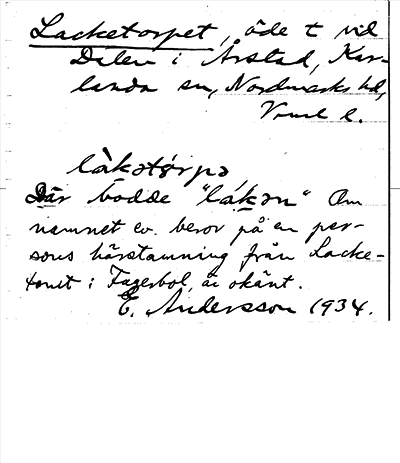 Lacketorpet, öde t vid
Dalen i Årstad, Kar-
landa sn, Nordmarks hd,
Vrml l.
làkətórpə,
Där bodde "lákən" Om
namnet ev. beror på en per-
sons härstamning från Lacke-
tomt i Fagerbol, är okänt.
E. Andersson 1934.